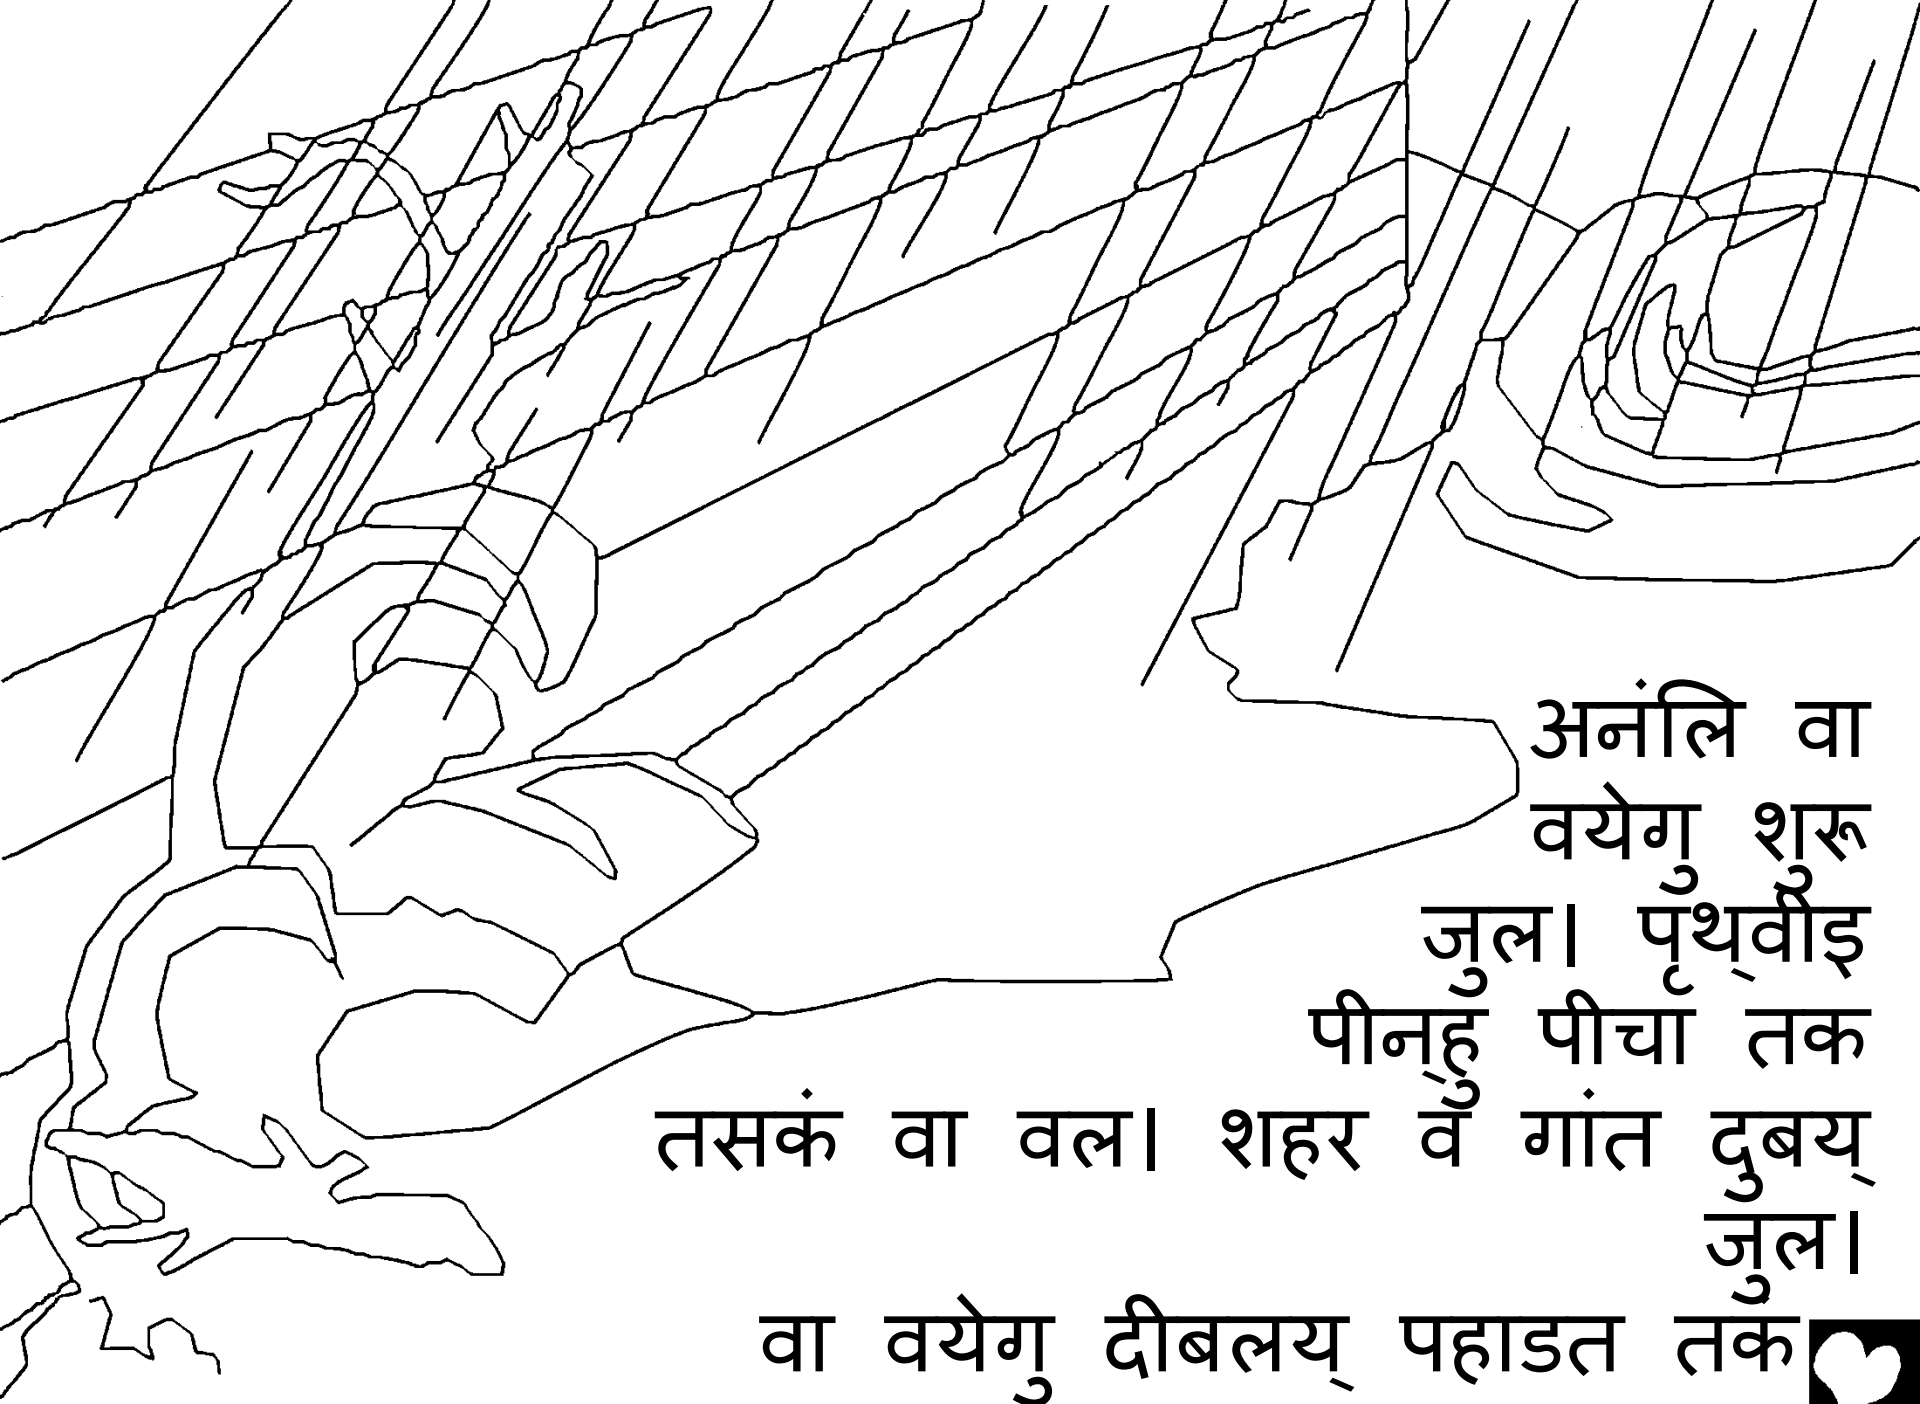 अनंलि वा
वयेगु शुरू
जुल। पृथ्‌वीइ
पीन्‌हु पीचा तक
तसकं वा वल। शहर व गांत दुबय्
जुल।
वा वयेगु दीबलय् पहाडत तकं